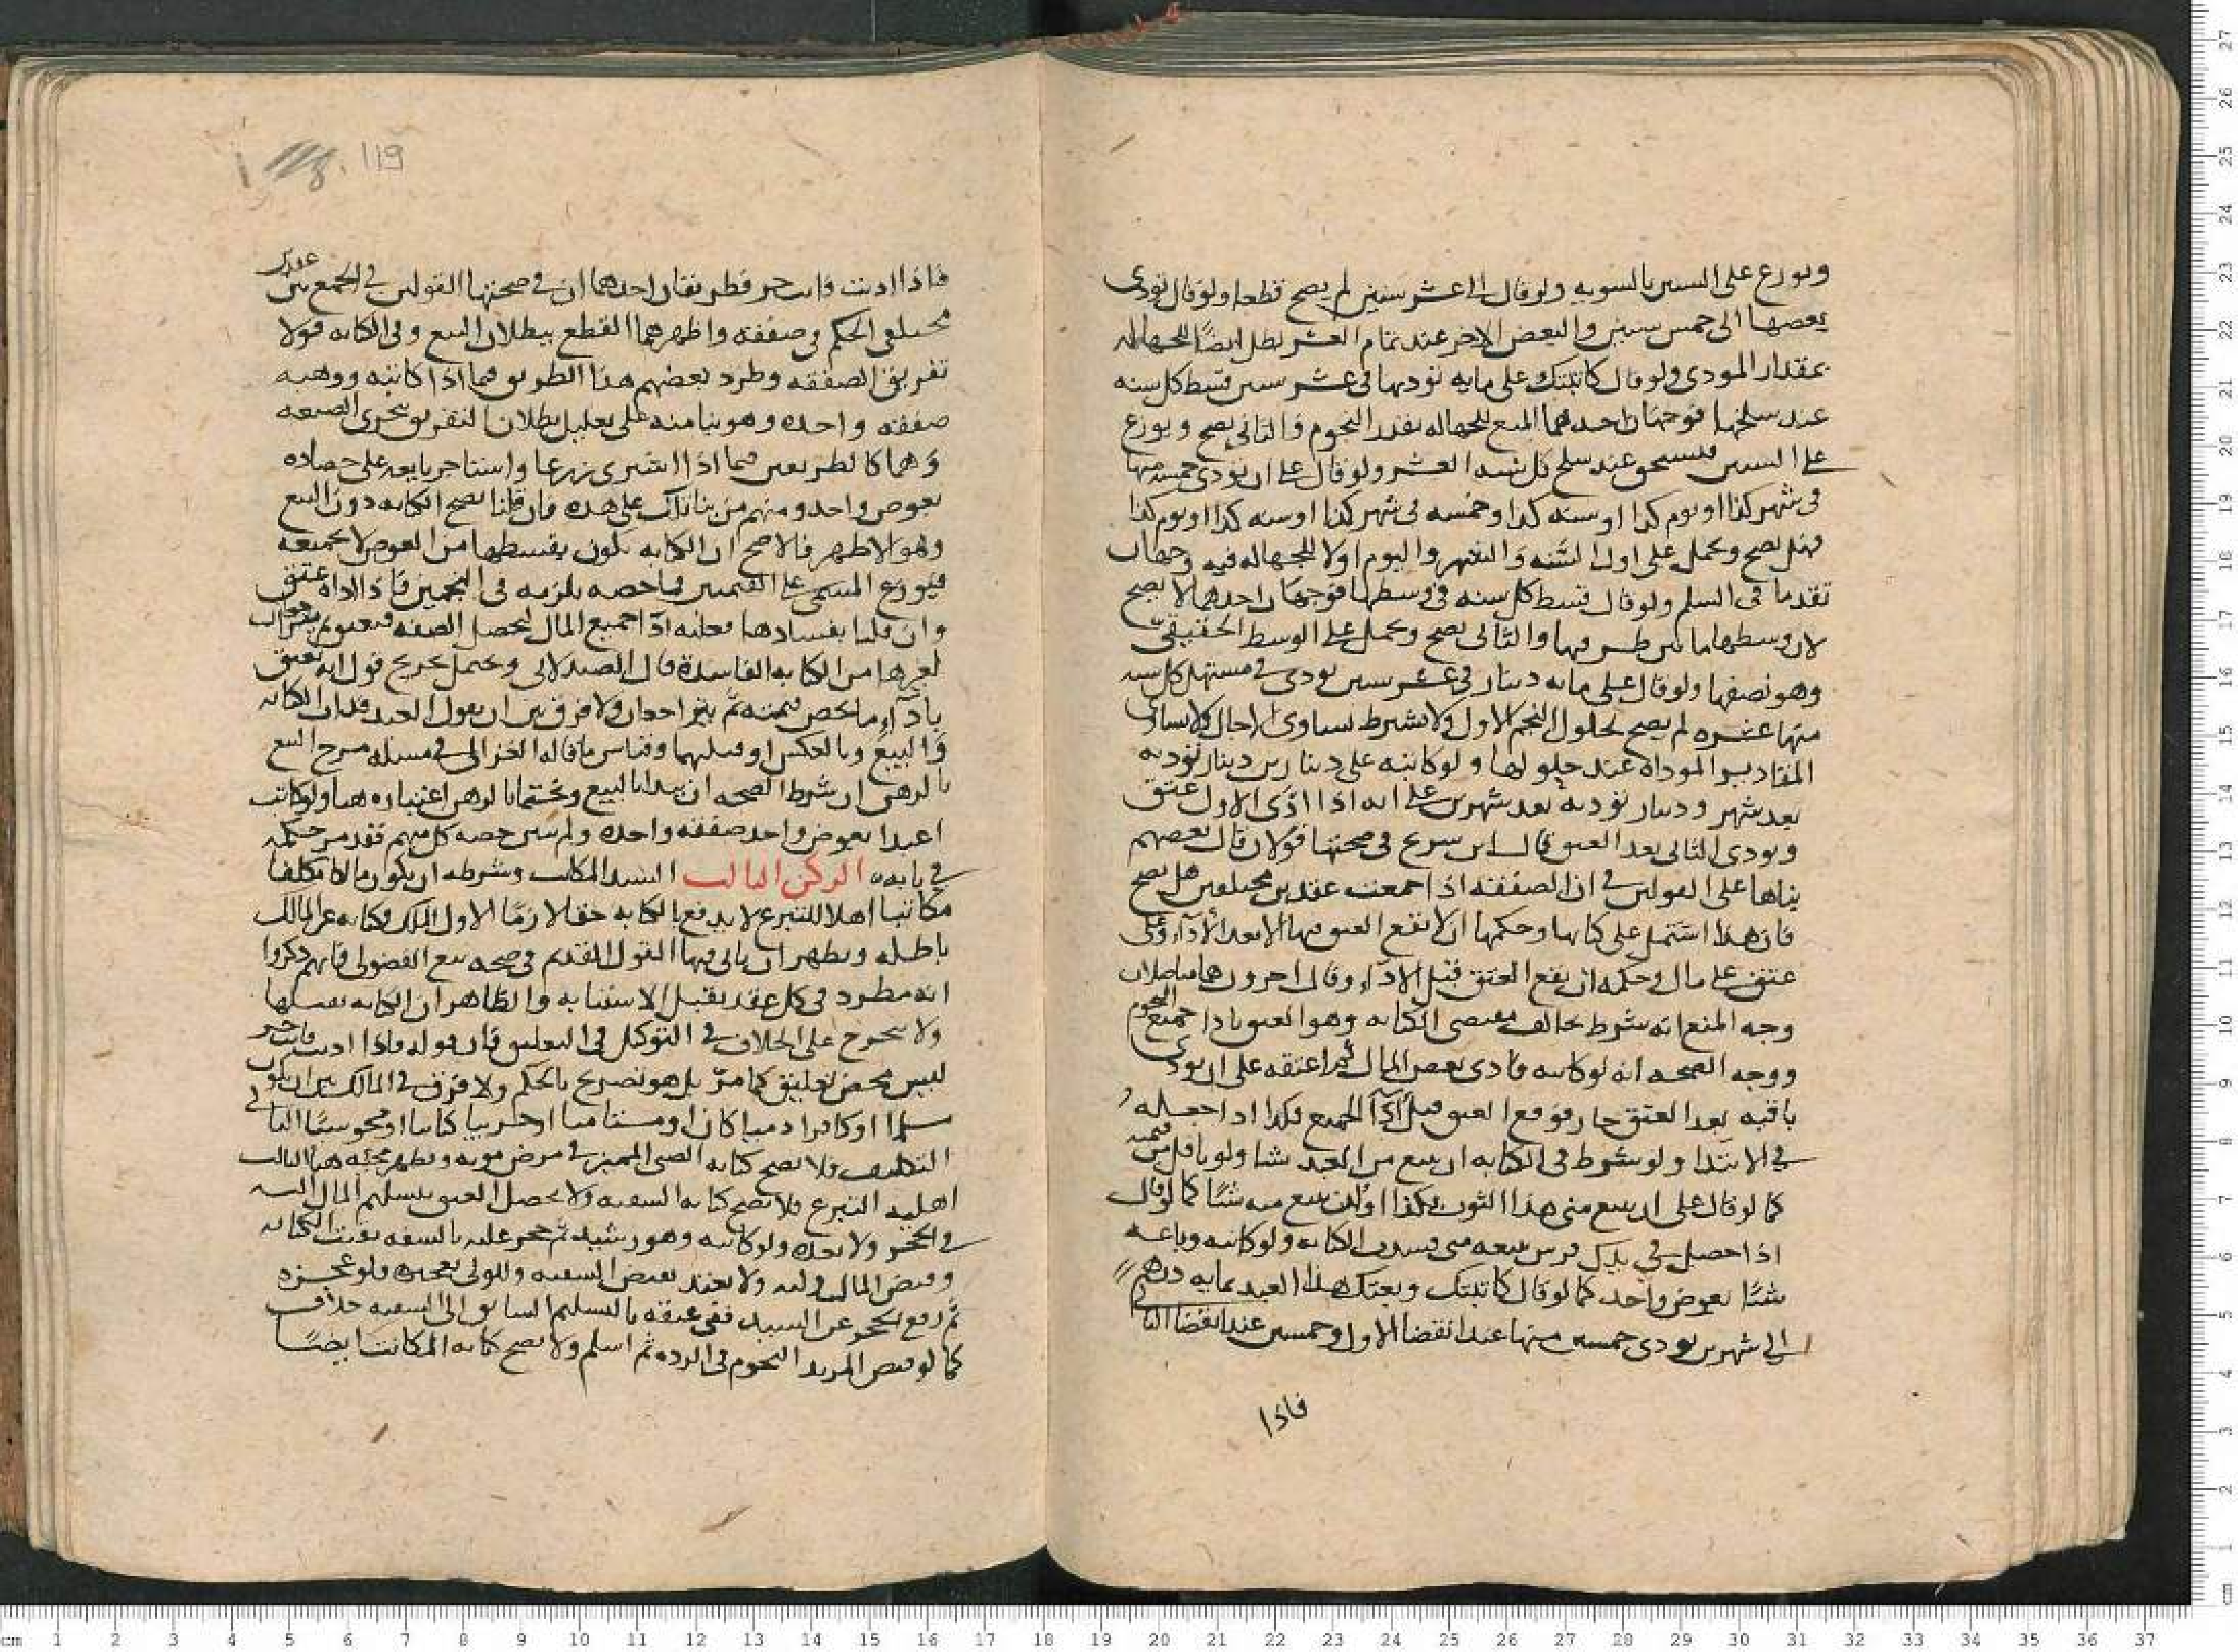 ويوزع على السنين بالسويه ولو قال الى عشر سنين لم يصح قطعا ولو قال تودى
بعضها الى خمس سنين والبعض الاخر عند تمام العشر بطل ايضًا للجهاله
بمقدار المودى ولو قال كاتبتك على مايه تودها فى عشر سنين قسط كل سنه
عند سلخها فوجهان احدهما المنع للجهاله بقدر النجوم والثانى يصح ويوزع
على السنين فيستحق عند سلخ كل سنه العشر ولو قال على ان تودى خمسه منها
فى شهر كذا او يوم كذا او سنه كذا وخمسه فى شهر كذا او سنه كذا او يوم كذا
فهل يصح ويحمل على اول السنه والشهر واليوم اولا للجهاله فيه وجهان
تقدما فى السلم ولو قال قسط كل سنه فى وسطها فوجهان احدهما لا يصح
لان وسطها ما بين طرفيها والثانى يصح ويحمل على الوسط الحقيقىّ
وهو نصفها ولو قال على مايه دينار فى عشر سنين تودى فى مستهل كل سنه
منها عشره لم يصح لحلول النجم الاول ولا يشترط تساوى الاجال ولا تساوى
المقادير الموداه عند حلولها ولو كاتبه على دينارين دينار توديه
بعد شهر ودينار توديه بعد شهرين على انه اذا ادّى الاول عتق
ويودى الثانى بعد العتق قال ابن سريج فى صحتها قولان قال بعضهم
بناها على القولين فى ان الصفقه اذا جمعت عقدين مختلفين هل يصح
فان هذا اشتمل على كتابه وحكمها ان لا يقع العتق فيها الا بعد الادآء وعلى
عتق على مال وحكمه ان يقع العتق قبل الادآء وقال اخرون هما اصلان
وجه المنع انه شرط يخالف مقتضى الكتابه وهو العتق بادا جميع النجوم
ووجه الصحه انه لو كاتبه فادى بعض المال ثم اعتقه على ان يودى
باقيه بعد العتق جاز فوقع العتق قبل ادآ الجميع فكذا اذا جعله
فى الابتدا ولو شرط فى الكتابه ان يبيع من العبد شيا ولو باقل من قيمته
كما لو قال على ان يبيع منى هذا الثوب بكذا او ان يبيع منه شيًا كما لو قال
اذا حصل فى يدك فرس تبيعه منى فسدت الكتابه ولو كاتبه وباعه
شيًا بعوض واحد كما لو قال كاتبتك وبعتك هذا العبد بمايه درهم
الى شهرين تودى خمسين منها عند انقضا الاول وخمسين عند انقضا الثانى
فاذا
119
فاذا اديت فانت حر فطريقان احدهما ان فى صحتها القولين فى الجمع بين عقدين
مختلفى الحكم فى صفقه واظهرهما القطع ببطلان البيع وفى الكتابه قولا
تفريق الصفقه وطرد بعضهم هذا الطريق فيما اذا كاتبه ووهبه
صفقه واحده وهو بنا منه على تعليل بطلان التفريق بتجزى الصيغه
وهما كالطريقين فيما اذا اشترى زرعا واستاجر بايعه على حصاده
بعوض واحد ومنهم من بنا تلك على هذه فان قلنا تصح الكتابه دون البيع
وهو الاظهر فالاصح ان الكتابه تكون بقسطها من العوض لا بجميعه
فيوزع المسمى على القيمتين فما خصه يلزمه فى النجمين فاذا اداه عتق
وان قلنا بفسادها فعليه ادا جميع المال لتحصل الصفه فيعتق ثم يتراجعان
لغيرها من الكتابه الفاسده قال الصيدلانى ويحتمل تخريج قول انه يعتق
بادآء ما يخص قيمته ثم يتراجعان ولا فرق بين ان يقول العبد قبلت الكتابه
والبيع وبالعكس او قبلتهما وقياس ما قاله الغزالى فى مسئله مزج البيع
بالرهن ان شرط الصحه ان يبدا بالبيع ويختما بالرهن اعتباره هنا ولو كاتب
اعبدا بعوض واحد صفقه واحده ولم يبين حصه كل منهم فقد مر حكمه
فى بابه الركن الثالث السيد المكاتب وشرطه ان يكون مالكا مكلفا
مكاتبا اهلا للتبرع لا يدفع بالكتابه حقا لازمًا الاول الملك فكتابه غير المالك
باطله ويظهر ان ياتى فيها القول القديم فى صحه بيع الفضولى فانهم ذكروا
انه مطرد فى كل عقد يقبل الاستنابه والظاهر ان الكتابه تقبلها
ولا يخرج على الخلاف فى التوكيل فى التعليق فان قوله فاذا اديت فانت حر
ليس محض تعليق كما مرّ بل هو تصريح بالحكم ولا فرق فى المالك بين ان يكون
مسلما او كافرا ذميا كان او مستامنا او حربيا كتابيا او مجوسيًا الثانى
التكليف فلا تصح كتابه الصبى المميز فى مرض موته ويظهر مجيئه هنا الثالث
اهليه التبرع فلا تصح كتابه السفيه ولا يحصل العتق بتسليم المال اليه
فى الحجر ولا بعده ولو كاتبه وهو رشيد ثم حجر عليه بالسفه بقيت الكتابه
وقبض المال وليه ولا يعتد بقبض السفيه وللولى تعجيزه فلو عجزه
ثم رفع الحجر عن السيد ففى عتقه بالتسليم السابق الى السفيه خلاف
كما لو قبض المرتد النجوم فى الرده ثم اسلم ولا تصح كتابه المكاتب ايضًا